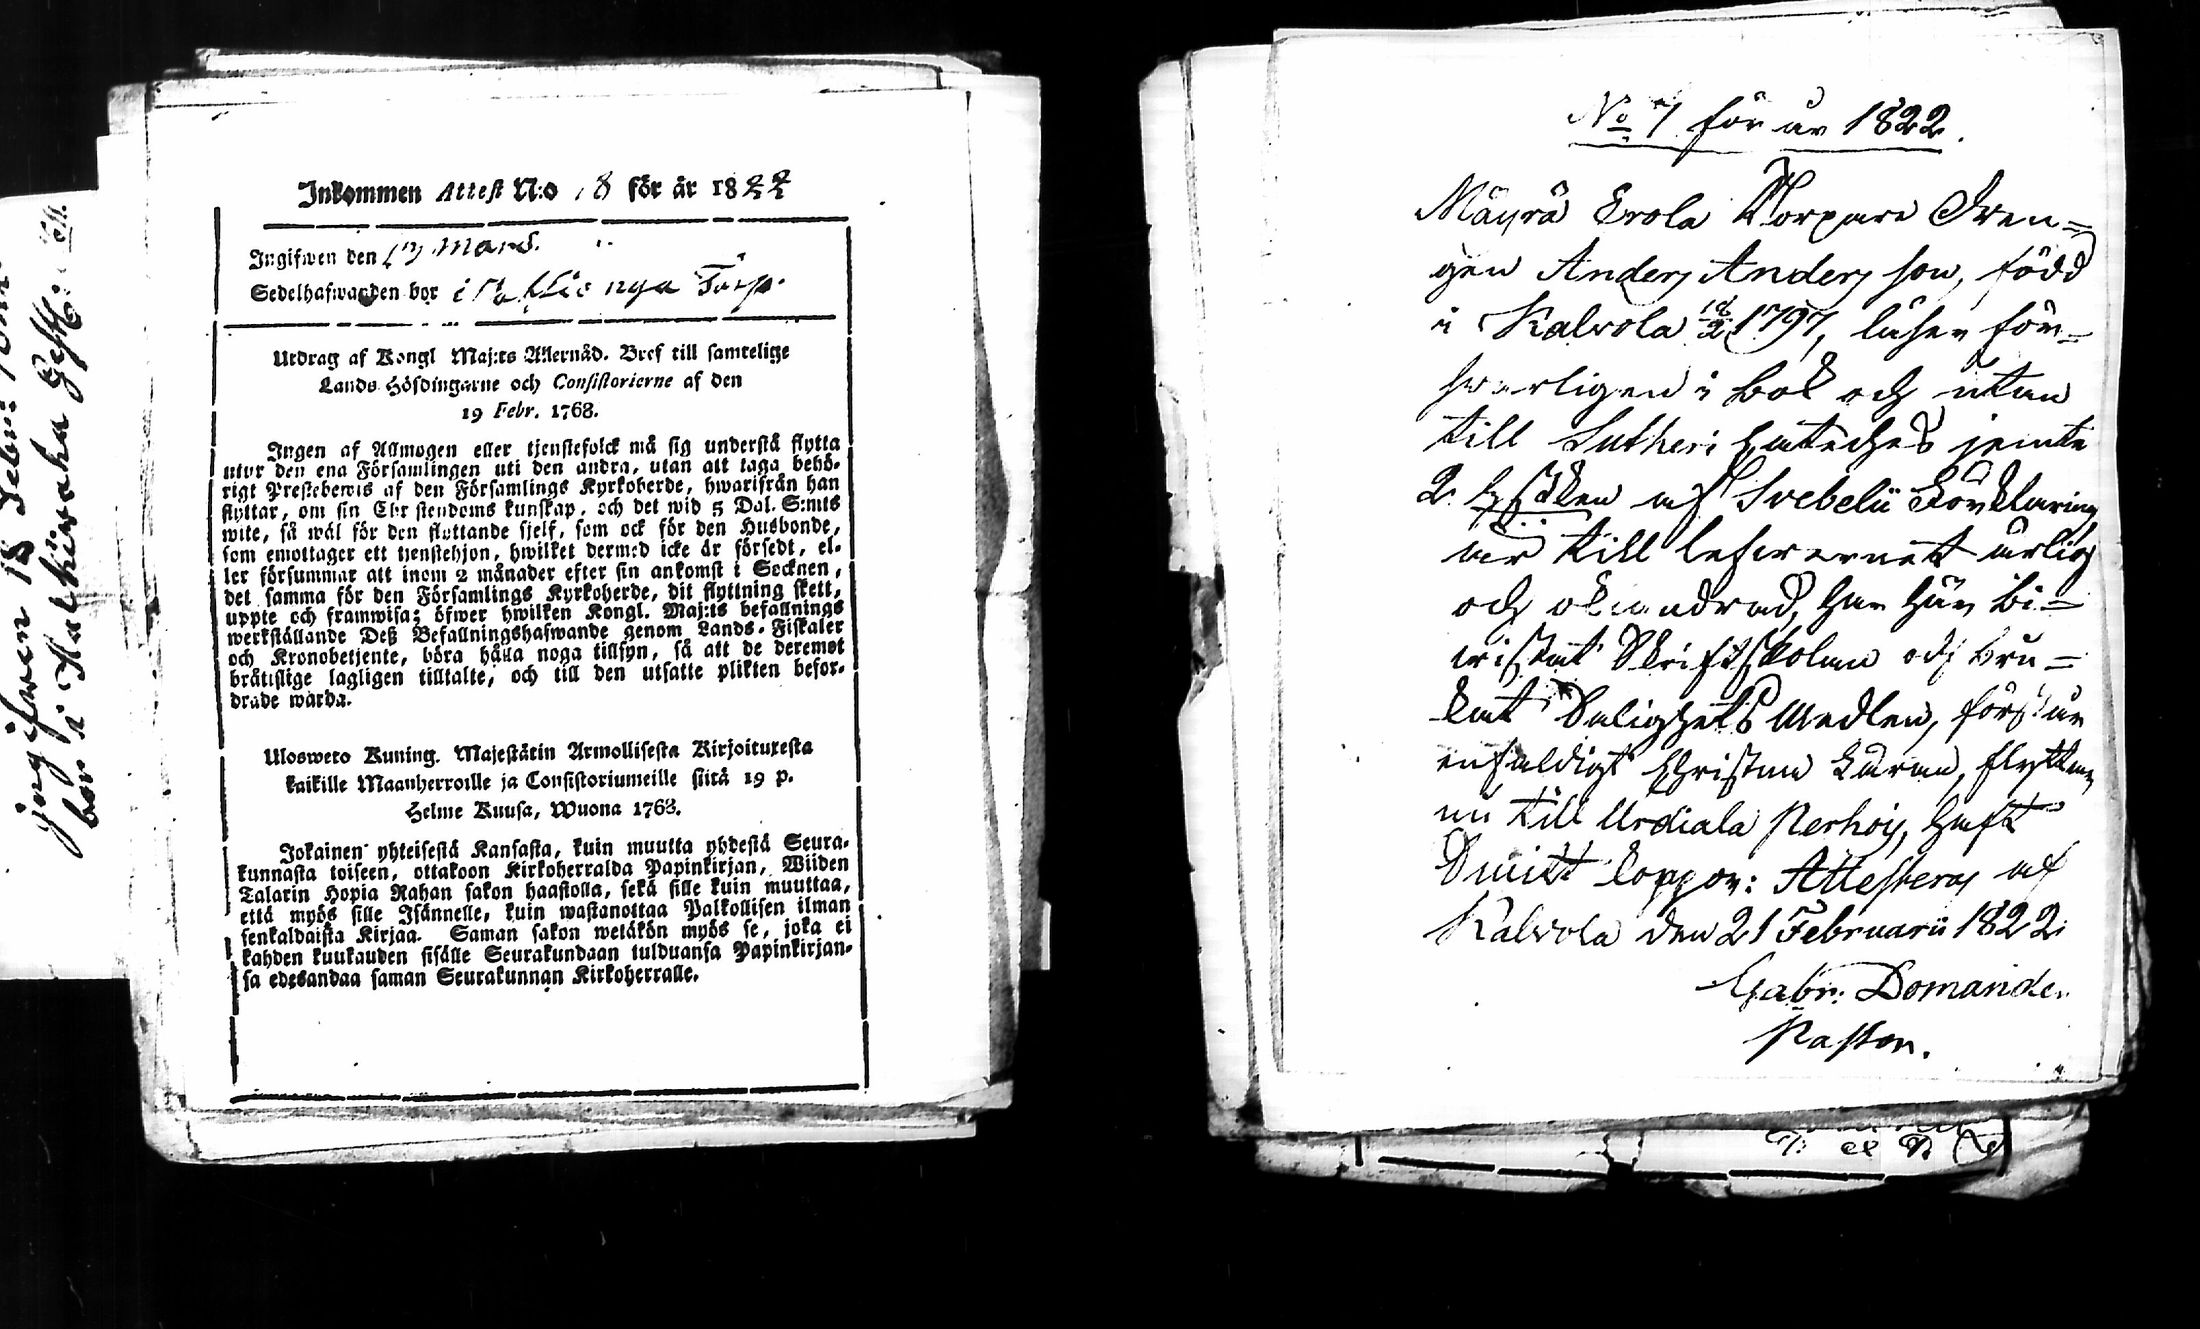 ingifwen 18
bor i
Inkommen Attest N:o 18 för år 1822
Ingifwen den 17 Mars.
Sedelhafwanden bor i Torp.
Utdrag af Kongl Maj:ts Allernåd. Bref till samtelige
Lands Höfdingarne och Consistorierne af den
19 Febr. 1768.
Ingen af Allmogen eller tjenstefolck må sig understå flytta
utur den ena Församlingen uti den andra, utan att taga behö-
rigt Prestebewis af den Församlings Kyrkoherde, hwarifrån han
flyttar, om sin Christendoms kunskap, och det wid 5 Dal. S:mts
wite, så wäl för den flyttande sjelf, som ock för den Husbonde,
som emottager ett tienstehjon, hwilket dermed icke är försedt, el-
ler försummar att inom 2 månader efter sin ankomst i Socknen,
det samma för den Församlings Kyrkoherde, dit flyttning skett,
uppte och framwisa; öfwer hwilken Kongl. Maj:ts befallnings
werkställande Deß Befallningshafwande genom Lands-Fiskaler
och Kronobetjente, böra hålla noga tillsyn, så att de deremot
bråtislige lagligen tilltalte, och till den utsatte plikten befor-
drade warda.
Ulosweto Kuning. Majestätin Armollisesta Kirjoituxesta
kaikille Maanherroille ja Consistoriumeille siitä 19 p.
Helme Kuusa, Wuona 1768.
Jokainen yhteisestä Kansasta, kuin muutta yhdestä Seura-
kunnasta toiseen, ottakoon Kirkoherralda Papinkirjan, Wiiden
Talarin Hopia Rahan sakon haastolla, sekä sille kuin muuttaa,
että myös sille Isännelle, kuin wastanottaa Palkollisen ilman
senkaldaista Kirjaa. Saman sakon wetäkön myös se, joka ei
kahden kuukauden sisälle Seurakundaan tulduansa Papinkirjan-
sa edesandaa saman Seurakunnan Kirkoherralle.
No 7 för år 1822.
Mäyrä Erola Torpare Dren-
gen Anders Anders son, född
i Kalvola 18/2 1797, läser för-
swarligen i bok och utan
till Lutheri Cateches jemte
2 Stÿcken af Svebelii Förklaring
är till lefwernett ärlig
och oklandrad, har här bi-
wistat Skriftskolan och bru-
kat Salighets Medlen, förstår
enfaldigt Christna Läran, flyttar
nu till Urdiala Nerhois, haft
Smitt koppor: Attesteras af
Kalvola den 21 Februarii 1822.
Gabr: Domander
Pastor.